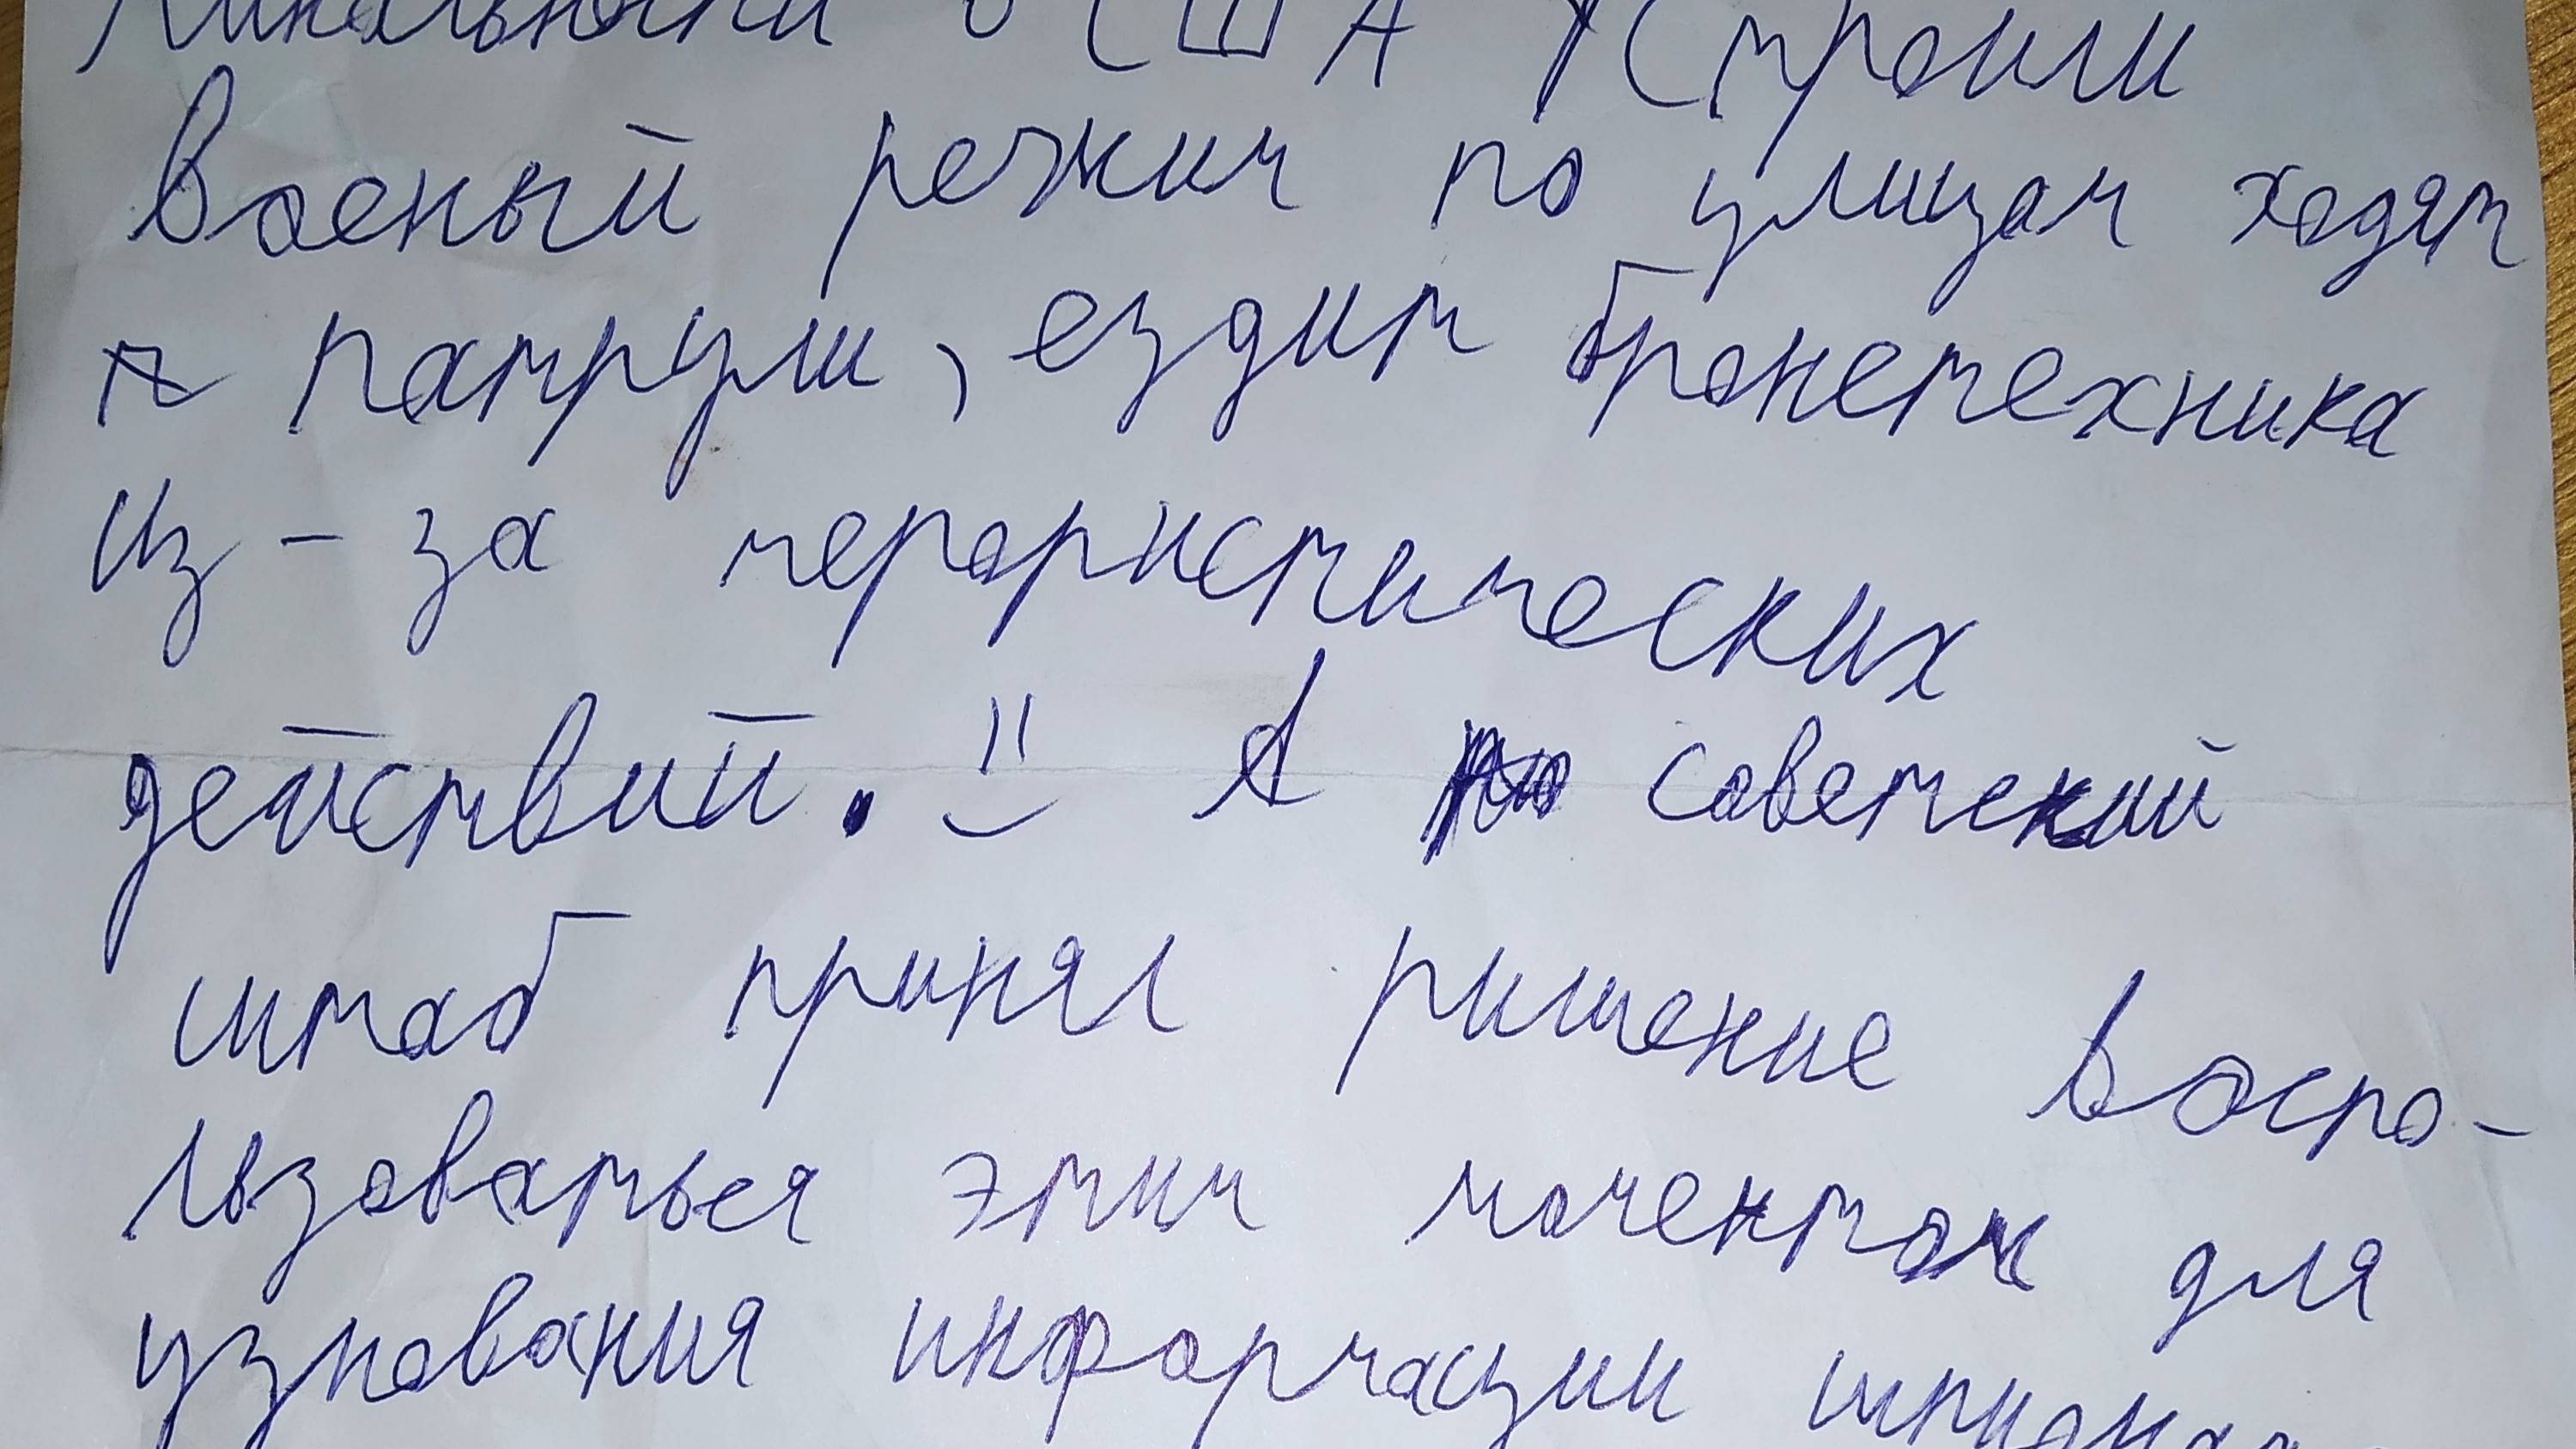 в США устроили
военый режим по улицам ходят
патрули, ездит бронетехника
из-за терористических
действий. А советский
штаб принял ришение воспо-
льзоваться этим моментом для
узнования информации